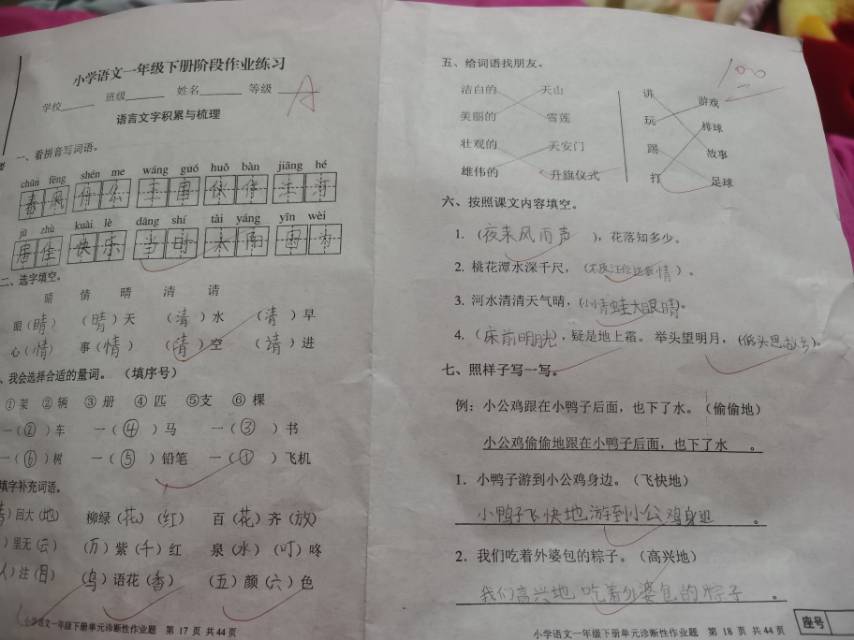 小学语文一年级下册阶段作业练习
学校 班级 姓名 等级 A
语言文字积累与梳理
一、看拼音写词语。
chūn fēng shén me wáng guó huǒ bàn jiāng hé
春风 什么 王国 伙伴 江河
jū zhù kuài lè dāng shí tài yáng yīn wèi
居住 快乐 当时 太阳 因为
二、选字填空。
睛 情 晴 清 请
眼(睛) (晴)天 (清)水 (清)早
心(情) 事(情) (请)进
、我会选择合适的量词。(填序号)
①架 ②辆 ③册 ④匹 ⑤支 ⑥棵
一(②)车 一(④)马 一(③)书
一(⑥)树 一(⑤)铅笔 一(①)飞机
填字补充词语。
)回大(地) 柳绿(花)(红) 百(花)齐(放)
)里无(云) (万)紫(千)红 泉(水)(叮)咚
(人)注(目) (鸟)语花(香) (五)颜(六)色
小学语文一年级下册单元诊断性作业题 第 17 页 共 44 页
五、给词语找朋友。
100
洁白的 天山
美丽的 雪莲
壮观的 天安门
雄伟的 升旗仪式
讲 游戏
玩 排球
踢 故事
打 足球
六、按照课文内容填空。
1.(夜来风雨声),花落知多少。
2. 桃花潭水深千尺,(不及汪伦送我情)。
3. 河水清清天气晴,(小青蛙大眼睛)。
4.(床前明月光),疑是地上霜。 举头望明月,(低头思故乡)。
七、照样子写一写。
例:小公鸡跟在小鸭子后面,也下了水。(偷偷地)
小公鸡偷偷地跟在小鸭子后面,也下了水 。
1. 小鸭子游到小公鸡身边。(飞快地)
小鸭子飞快地游到小公鸡身边 。
2. 我们吃着外婆包的粽子。(高兴地)
我们高兴地吃着外婆包的粽子 。
小学语文一年级下册单元诊断性作业题 第 18 页 共 44 页
座号